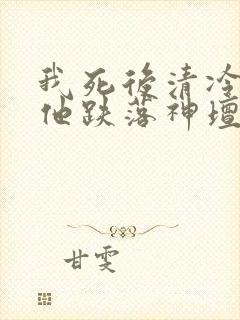 我死后清冷
他跌落神坛
甘雯